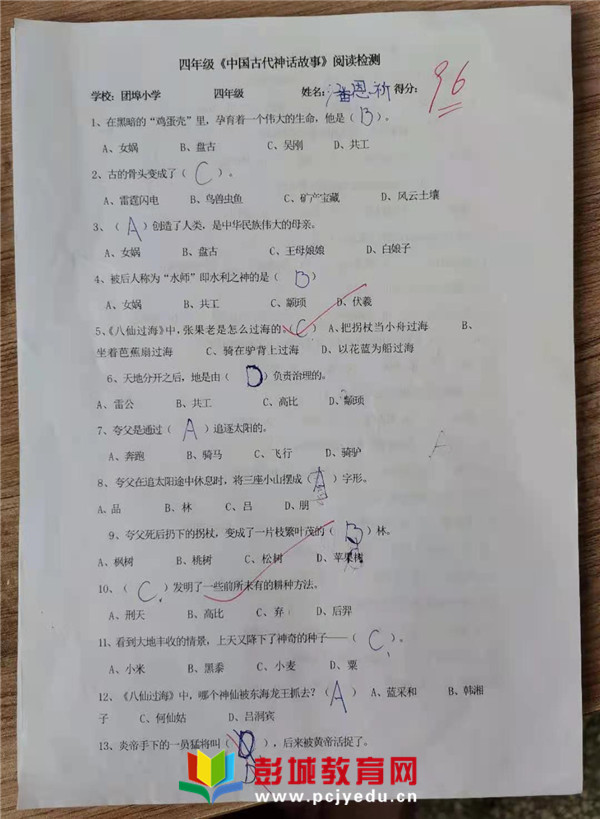 四年级《中国古代神话故事》阅读检测
学校：团埠小学 四年级 姓名：潘恩祈 得分：96
1、在黑暗的“鸡蛋壳”里，孕育着一个伟大的生命，他是（ B ）。
A、女娲 B、盘古 C、吴刚 D、共工
2、古的骨头变成了（ C ）。
A、雷霆闪电 B、鸟兽虫鱼 C、矿产宝藏 D、风云土壤
3、（ A ）创造了人类，是中华民族伟大的母亲。
A、女娲 B、盘古 C、王母娘娘 D、白娘子
4、被后人称为“水师”即水利之神的是（ B ）
A、女娲 B、共工 C、颛顼 D、伏羲
5、《八仙过海》中，张果老是怎么过海的（ C ） A、把拐杖当小舟过海 B、
坐着芭蕉扇过海 C、骑在驴背上过海 D、以花蓝为船过海
6、天地分开之后，地是由（ D ）负责治理的。
A、雷公 B、共工 C、高比 D、颛顼
7、夸父是通过（ A ）追逐太阳的。
A、奔跑 B、骑马 C、飞行 D、骑驴
8、夸父在追太阳途中休息时，将三座小山摆成（ A ）字形。
A、品 B、林 C、吕 D、朋
9、夸父死后扔下的拐杖，变成了一片枝繁叶茂的（ B ）林。
A、枫树 B、桃树 C、松树 D、苹果树
10、（ C ）发明了一些前所未有的耕种方法。
A、刑天 B、高比 C、弃 D、后羿
11、看到大地丰收的情景，上天又降下了神奇的种子——（ C ）。
A、小米 B、黑黍 C、小麦 D、粟
12、《八仙过海》中，哪个神仙被东海龙王抓去？（ A ） A、蓝采和 B、韩湘
子 C、何仙姑 D、吕洞宾
13、炎帝手下的一员猛将叫（ D ），后来被黄帝活捉了。
D
彭城教育网
www.pcjyedu.cn